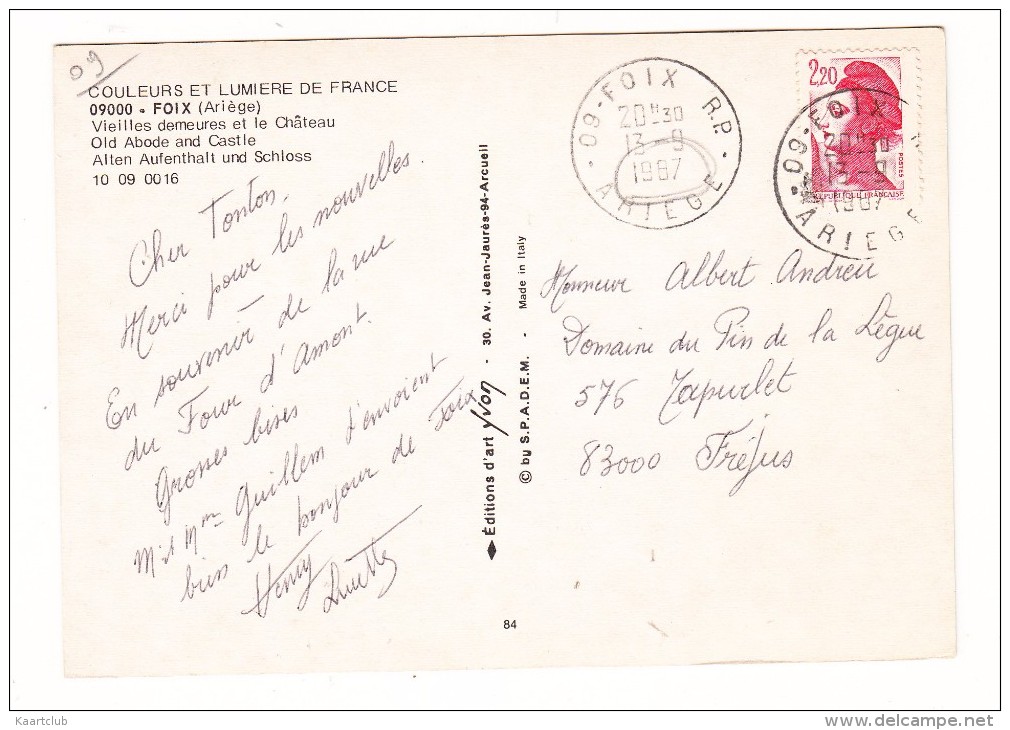 09
COULEURS ET LUMIERE DE FRANCE
09000 - FOIX (Ariège)
Vieilles demeures et le Château
Old Abode and Castle
Alten Aufenthalt und Schloss
10 09 0016
Cher Tonton.
Merci pour les nouvelles.
En souvenir de la rue
du Four d'Amont.
Grosses bises
M. et Mme Guillem t'envoient
bien le bonjour de Foix
Henry
Éditions d'art Yvon - 30. Av. Jean-Jaurès-94-Arcueil
© by S.P.A.D.E.M. - Made in Italy
84
09-FOIX R.P.
20H30
13-9
1987
ARIEGE
2,20
POSTES
REPUBLIQUE FRANÇAISE
09-FOIX
13-9
1987
ARIEGE
Monsieur Albert Andreu
Domaine du Pin de la Lègue
576
83000 Fréjus
Kaartclub
www.delcampe.net